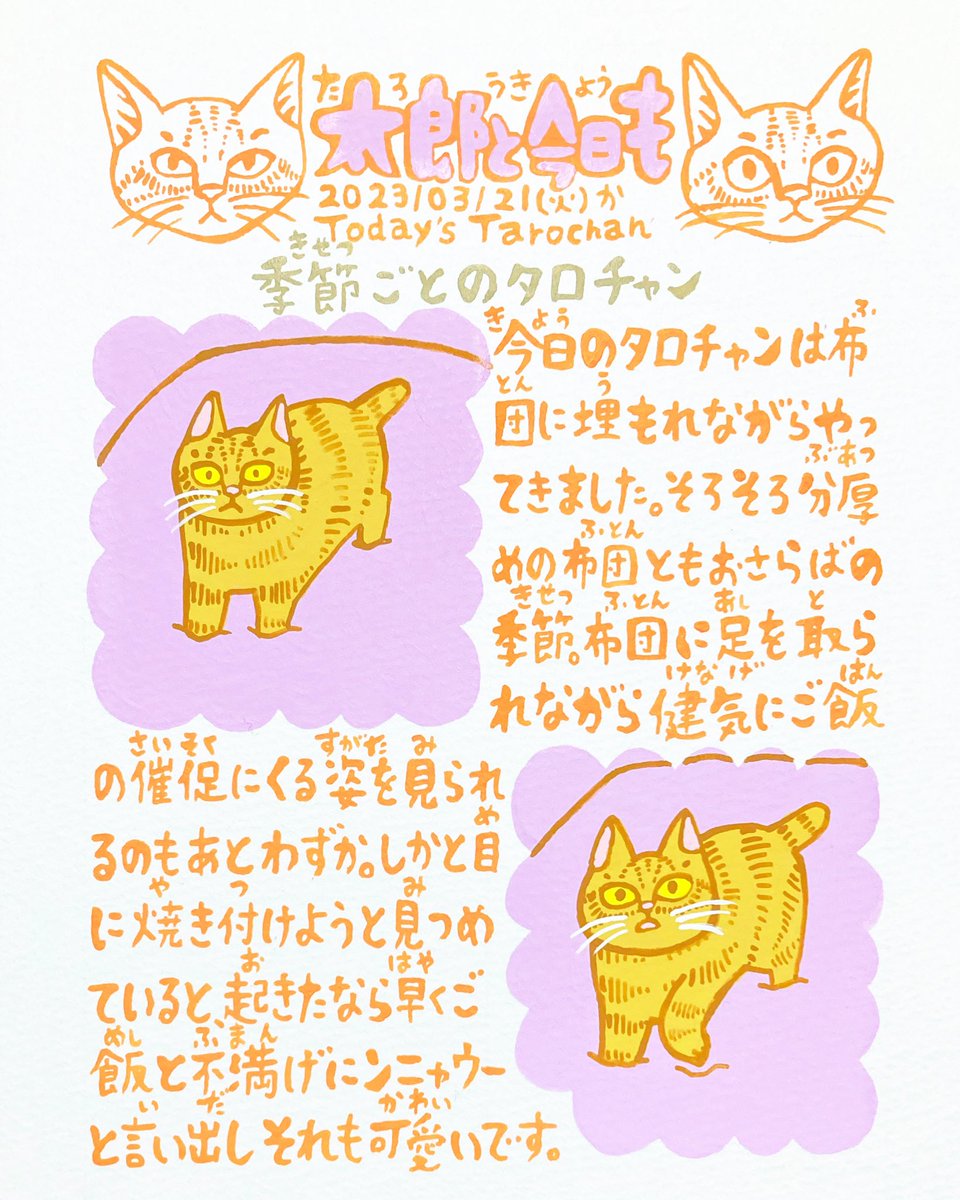 たろうきょう
太郎と今日も
2023/03/21(火)か
Today's Tarochan
きせつ
季節ごとのタロチャン
きょう ふ
今日のタロチャンは布
とん う
団に埋もれながらやっ
ぶあつ
てきました。そろそろ分厚
ふとん
めの布団ともおさらばの
きせつ ふとん あし と
季節。布団に足を取ら
けなげ はん
れながら健気にご飯
さいそく すがた み
の催促にくる姿を見られ
め
るのもあとわずか。しかと目
や つ み
に焼き付けようと見つめ
お はや
ていると、起きたなら早くご
めし ふまん
飯と不満げにンニャウー
い だ かわい
と言い出しそれも可愛いです。